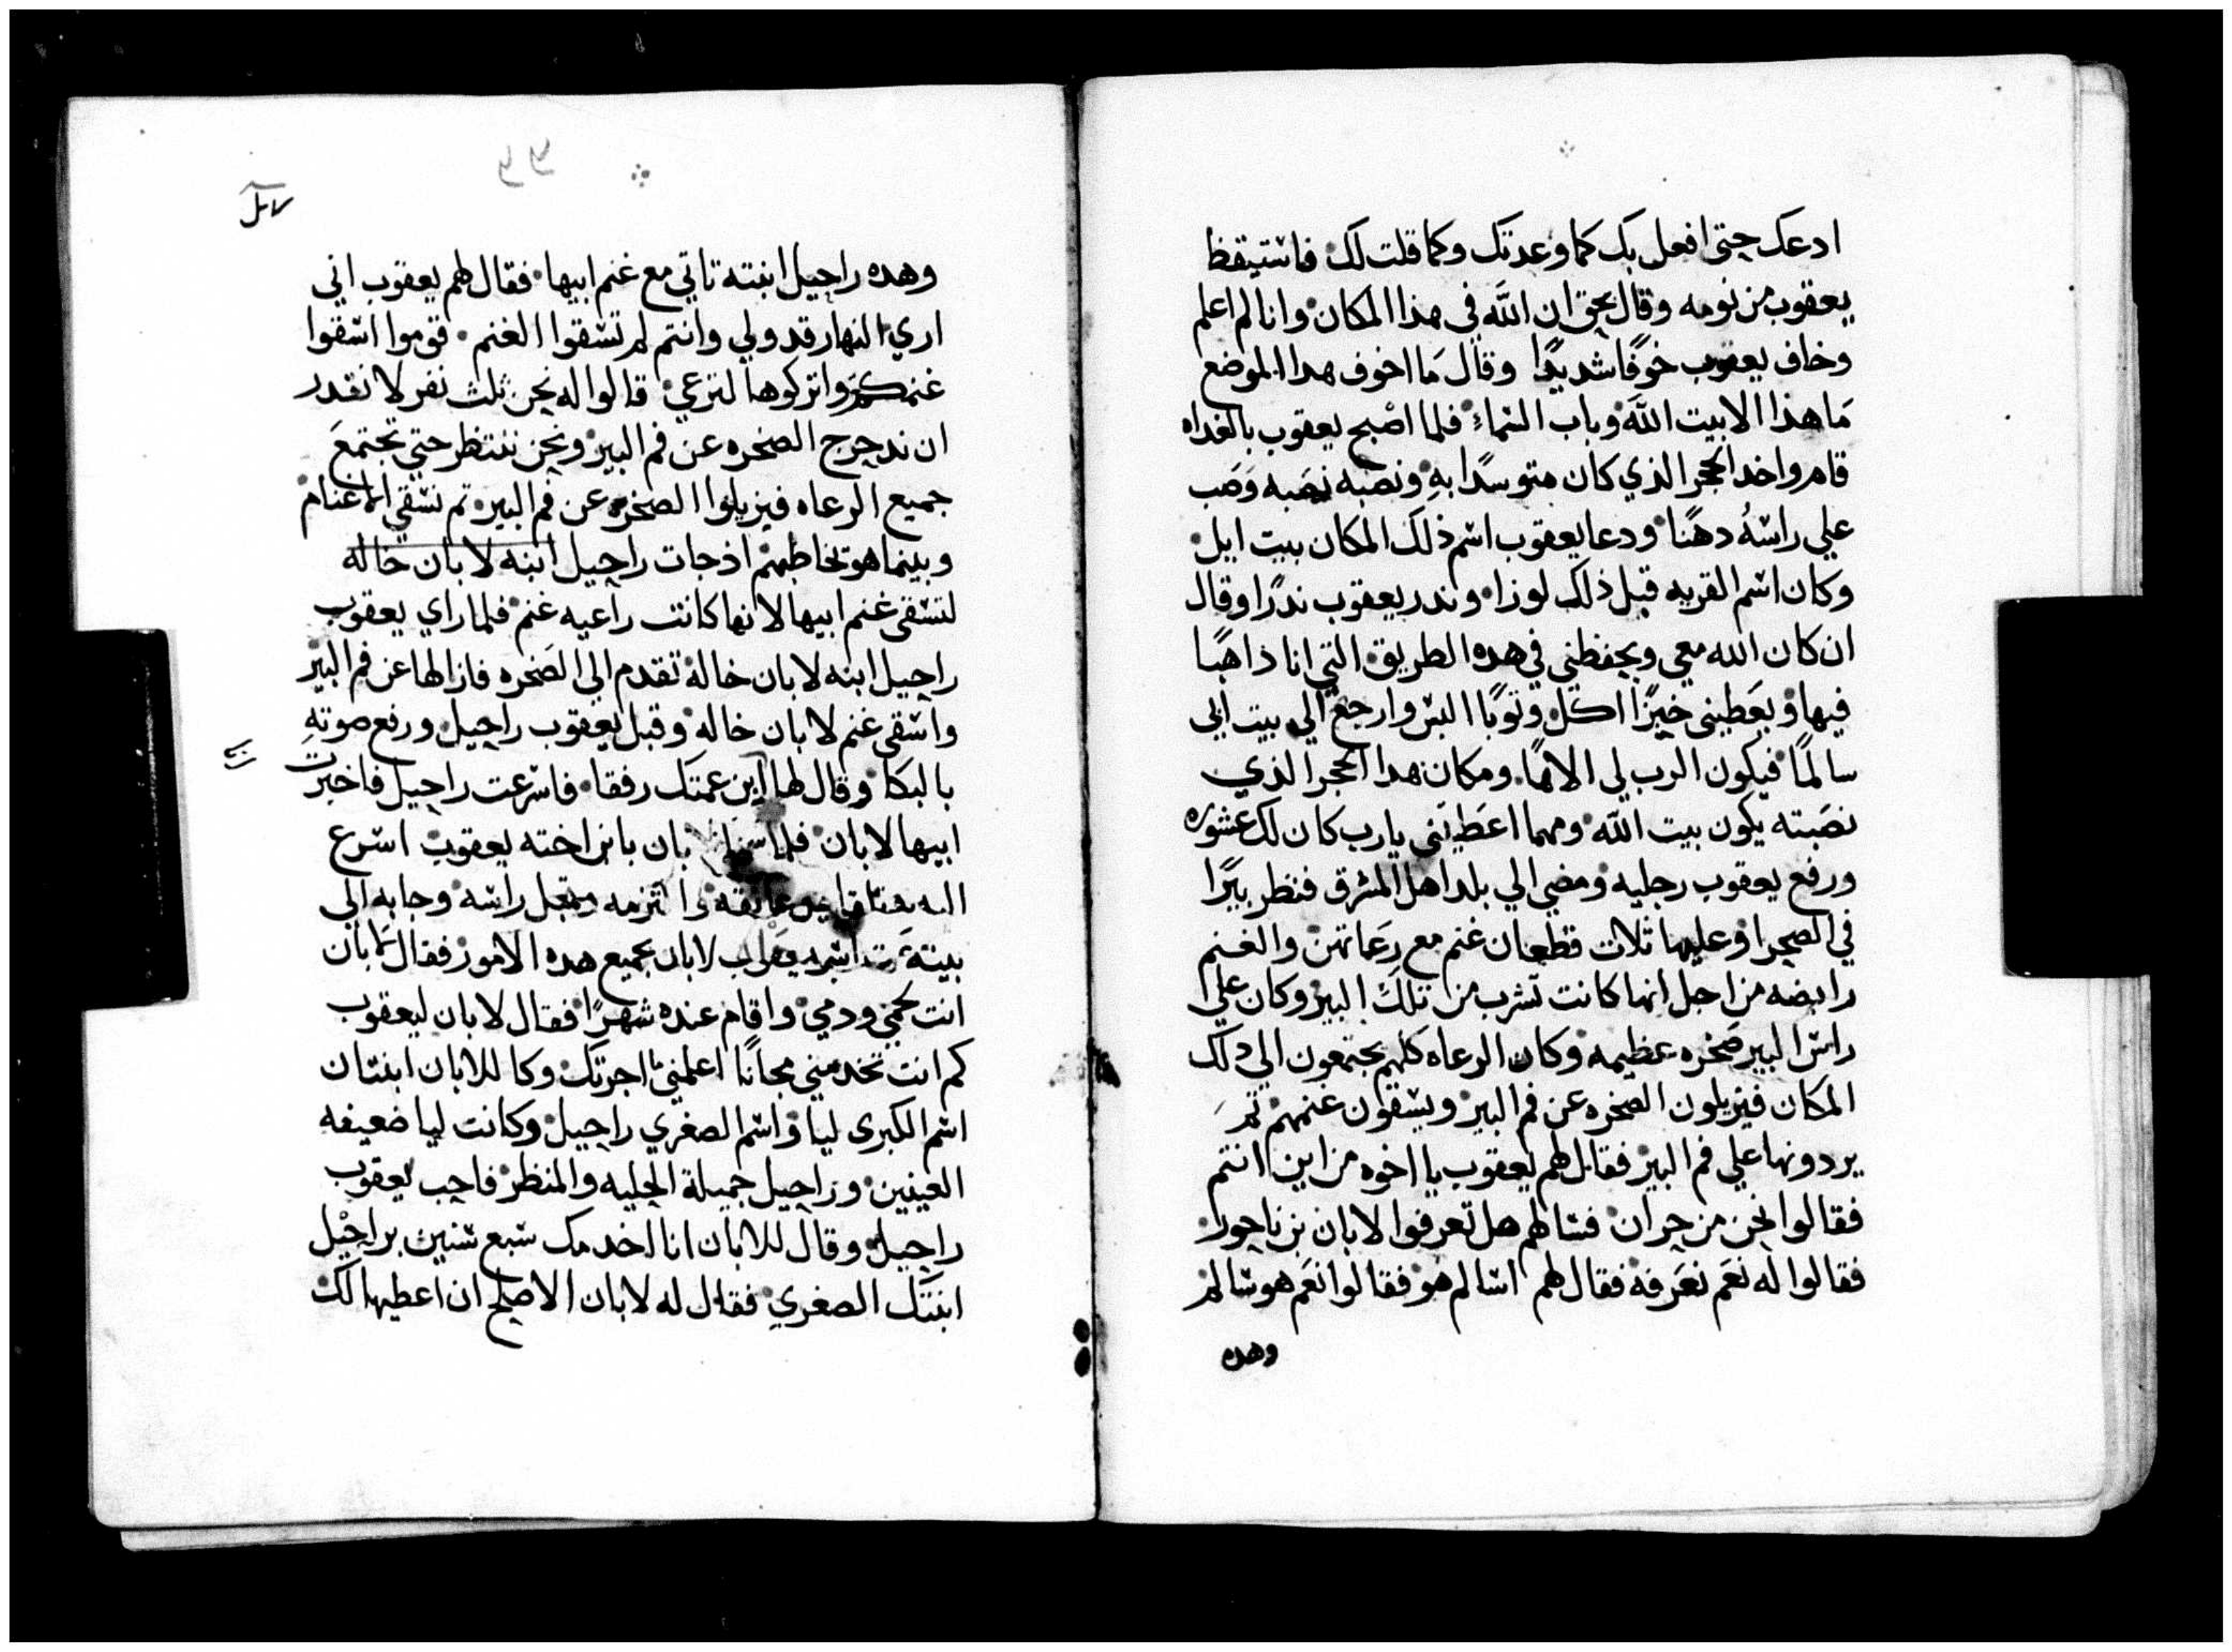 ادعك حتى افعل بك كما وعدتك وكما قلت لك فاستيقظ
يعقوب من نومه وقال بحق ان الله فى هذا المكان وانا لم اعلم
وخاف يعقوب خوفًا شديدًا وقال مَا اخوف هدا الموضع
مَا هذا الا بيت الله وباب السماء فلما اصْبح يعقوب بالغداه
قام واخد الحجر الذي كان متوسدًا بهِ ونصبه نصَبه وَصَب
علي راسهُ دهنًا ودعا يعقوب اسم ذلك المكان بيت ايل
وكان اسم القريه قبل ذلك لوزا وندر يعقوب ندرًا وقال
ان كان الله معي ويحفظنى في هده الطريق التي انا ذاهبًا
فيها ويعَطينى خبزًا اكل وتوبًا البس وارجع الي بيت ابي
سالمًا فيكون الرب لي الاهًا ومكان هدا الحجر الذي
نصَبته يكون بيت الله ومهما اعَطيتنى يارب كان لك عشوره
ورفع يعقوب رجليه ومضي الي بلد اهل المشرق فنظر بيرًا
في الصحرا وعليها ثلات قطعان غنم مع رعَاتهن والغنم
رابضه من اجل انها كانت تشرب من تلك البير وكان علي
راس البير صَخره عظيمه وكان الرعاه كلهم يجتمعون الي دلك
المكان فيزيلون الصخره عن فم البير ويسقون غنمهم تمَ
يردونها علي فم البير فقال لهم يعقوب يا اخوه من اين انتم
فقالوا نحن من حران فسالهم هل تعرفوا لابان بن ناحور
فقالوا له نعَم نعَرفه فقال لهم اسالم هو فقالوا نعَم هو سالم
وهده
وهده راحيل ابنته تاتي مع غنم ابيها فقال لهم يعقوب اني
اري النهار قد ولي وانتم لم تسقوا الغنم قوموا اسقوا
غنمكم واتركوها لترعي قالوا له نحن ثلث نفر لا نقدر
ان ندحرج الصخره عن فم البير ونحن ننتظر حتي تجتمعَ
جميع الرعاه فيزيلوا الصخره عن فم البير تم نسقي الاغنام
وبينما هو يخاطبهم اذ جات راحيل ابنه لابان خاله
لتسقى غنم ابيها لانها كانت راعيه غنم فلما راي يعقوب
راحيل ابنه لابان خاله تقدم الي الصَخره فازالها عن فم البير
واسقى غنم لابان خاله وقبل يعقوب راحيل ورفع صوتهِ
بالبكا وقال لها اين عمتك رفقا فاسرعت راحيل فاخبرت
ابيها لابان بابن اخته يعقوب اسرع
راسه وجابه الي
بيته لابان بجميع هده الامور فقال لابان
انت لحمي ودمي واقام عنده شهرًا فقال لابان ليعقوب
كم انت تخدمني مجانًا اعلمني ما اجرتك وكا للابان ابنتان
اسم الكبرى ليا واسم الصغري راحيل وكانت ليا ضعيفه
العينين وراحيل جميلة الحليه والمنظر فاحب يعقوب
راحيل وقال للابان انا اخدمك سبع سنين براحيل
ابنتك الصغري فقال له لابان الاصلح ان اعطيها لك